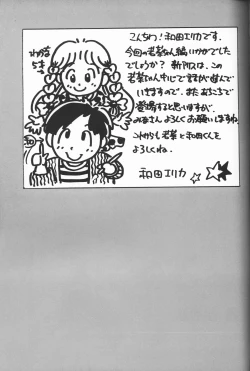 こんちわ!和田エリカです。
今回の若菜ちゃん編いかがでした
でしょうか?新刊は、この
若菜ちゃん中心で話が進んで
いきますので、またあちこちで
登場すると思いますが、
みなさんよろしくお願いしますね
これからも若菜と和田くんを
よろしくね。
和田エリカ
わかな